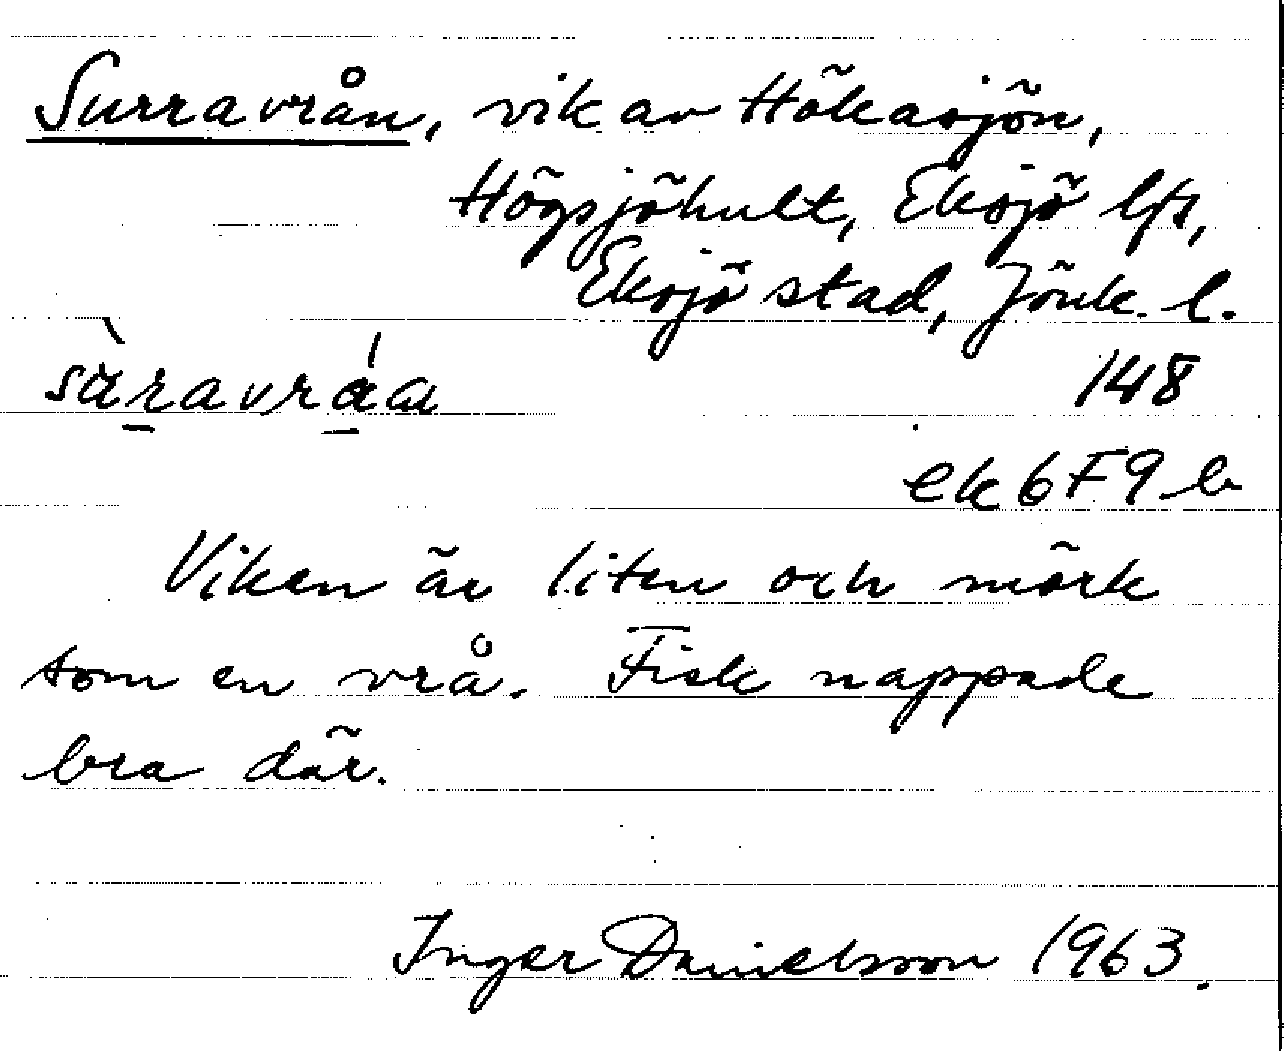 Surravrån, vik av Hökasjön,
Högsjöhult, Eksjö lfs,
Eksjö stad, Jönk. l.
148
ek 6F9 b
Viken är liten och mörk
som en vrå. Fisk nappade
bra där.
Inger Danielsson 1963.